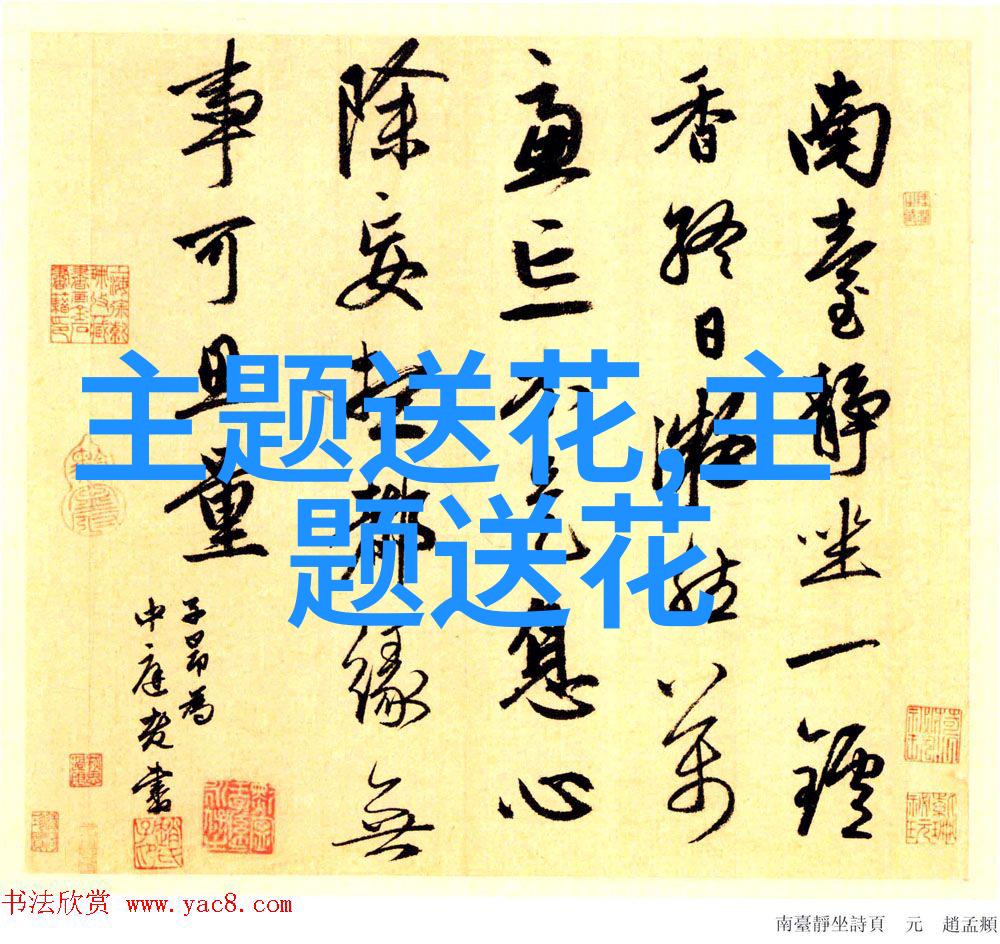 南臺靜坐一鑪
香終日凝然萬
慮亡不是息心
除妄想都緣無
事可思量
子昂為
中庭老書
主题送花,主
题送花
书法欣赏 www.yac8.com
南臺靜坐詩頁 元 趙孟頫